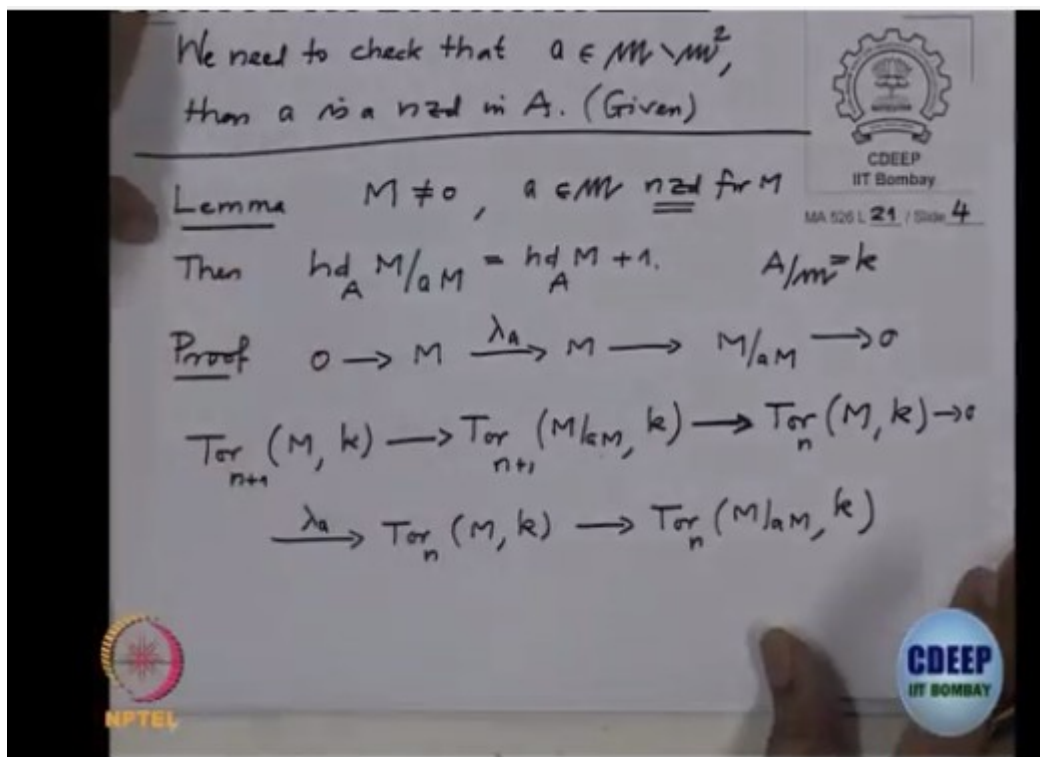 We need to check that a ∈ 𝔪 \ 𝔪²,
then a is a nzd in A. (Given)
CDEEP
IIT Bombay
MA 526 L 21 / Slide 4
Lemma M ≠ 0, a ∈ 𝔪 nzd for M
Then hd_A M/aM = hd_A M + 1. A/𝔪 = k
Proof 0 → M —λ_a→ M → M/aM → 0
Tor_{n+1} (M, k) → Tor_{n+1} (M/aM, k) → Tor_n (M, k) → 0
—λ_a→ Tor_n (M, k) → Tor_n (M/aM, k)
NPTEL
CDEEP
IIT BOMBAY